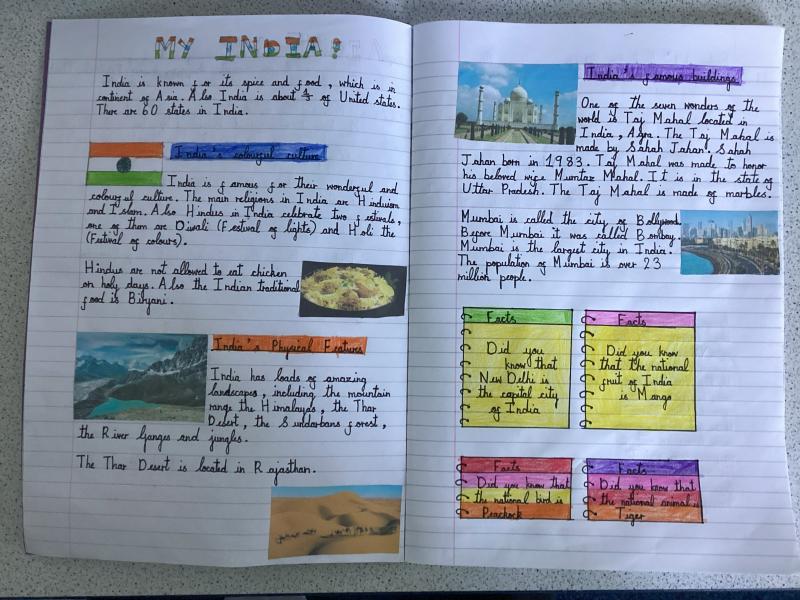 MY INDIA!
India is known for its spice and food, which is in
continent of Asia. Also India is about of United states.
There are 60 states in India.
India's colourful culture
India is famous for their wonderful and
colourful culture. The main religions in India are Hinduism
and Islam. Also Hindus in India celebrate two festivals,
one of them are Diwali (Festival of lights) and Holi the
(Festival of colours).
Hindus are not allowed to eat chicken
on holy days. Also the Indian traditional
food is Biryani.
India's Physical Features
India has loads of amazing
landscapes, including the mountain
range the Himalayas, the Thar
Desert, the Sundarbans forest,
the River Ganges and jungles.
The Thar Desert is located in Rajasthan.
India's famous buildings
One of the seven wonders of the
world is Taj Mahal located in
India, Agra. The Taj Mahal is
made by Sahah Jahan. Sahah
Jahan born in 1983. Taj Mahal was made to honor
his beloved wife Mumtaz Mahal. It is in the state of
Uttar Pradesh. The Taj Mahal is made of marbles.
Mumbai is called the city of Bollywood.
Before Mumbai it was called Bombay.
Mumbai is the largest city in India.
The population of Mumbai is over 23
million people.
Facts
Did you
know that
New Delhi is
the capital city
of India
Facts
Did you know
that the national
fruit of India
is Mango
Facts
Did you know that
the national bird is
Peackock
Facts
Did you know that
the national animal is
Tiger